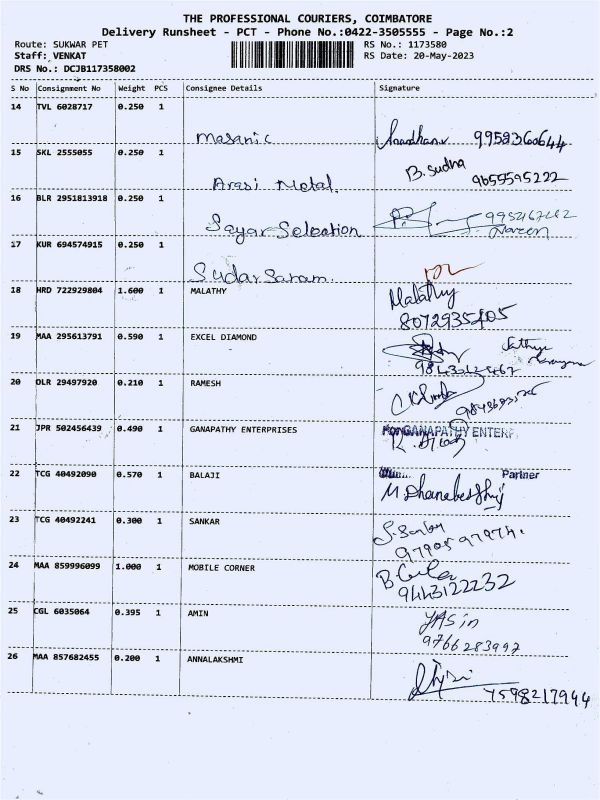 THE PROFESSIONAL COURIERS, COIMBATORE
Delivery Runsheet - PCT - Phone No.:0422-3505555 - Page No.:2
Route: SUKWAR PET RS No.: 1173580
Staff: VENKAT RS Date: 20-May-2023
DRS No.: DCJB117358002
S No Consignment No Weight PCS Consignee Details Signature
14 TVL 6028717 0.250 1
Masanic 9952360644
15 SKL 2555055 0.250 1
Arasi Metal. B. Sudha 9655595222
16 BLR 2951813918 0.250 1
Sayar Selection Naveen
17 KUR 694574915 0.250 1
Sudarsanam.
18 HRD 722929804 1.600 1 MALATHY Malathy
8072935405
19 MAA 295613791 0.590 1 EXCEL DIAMOND
20 OLR 29497920 0.210 1 RAMESH
21 JPR 502456439 0.490 1 GANAPATHY ENTERPRISES For GANAPATHY ENTERP
22 TCG 40492090 0.570 1 BALAJI Partner
23 TCG 40492241 0.300 1 SANKAR
97905 97974.
24 MAA 859996099 1.000 1 MOBILE CORNER
9443122232
25 CGL 6035064 0.395 1 AMIN YASin
9766283992
26 MAA 857682455 0.200 1 ANNALAKSHMI
7598217944